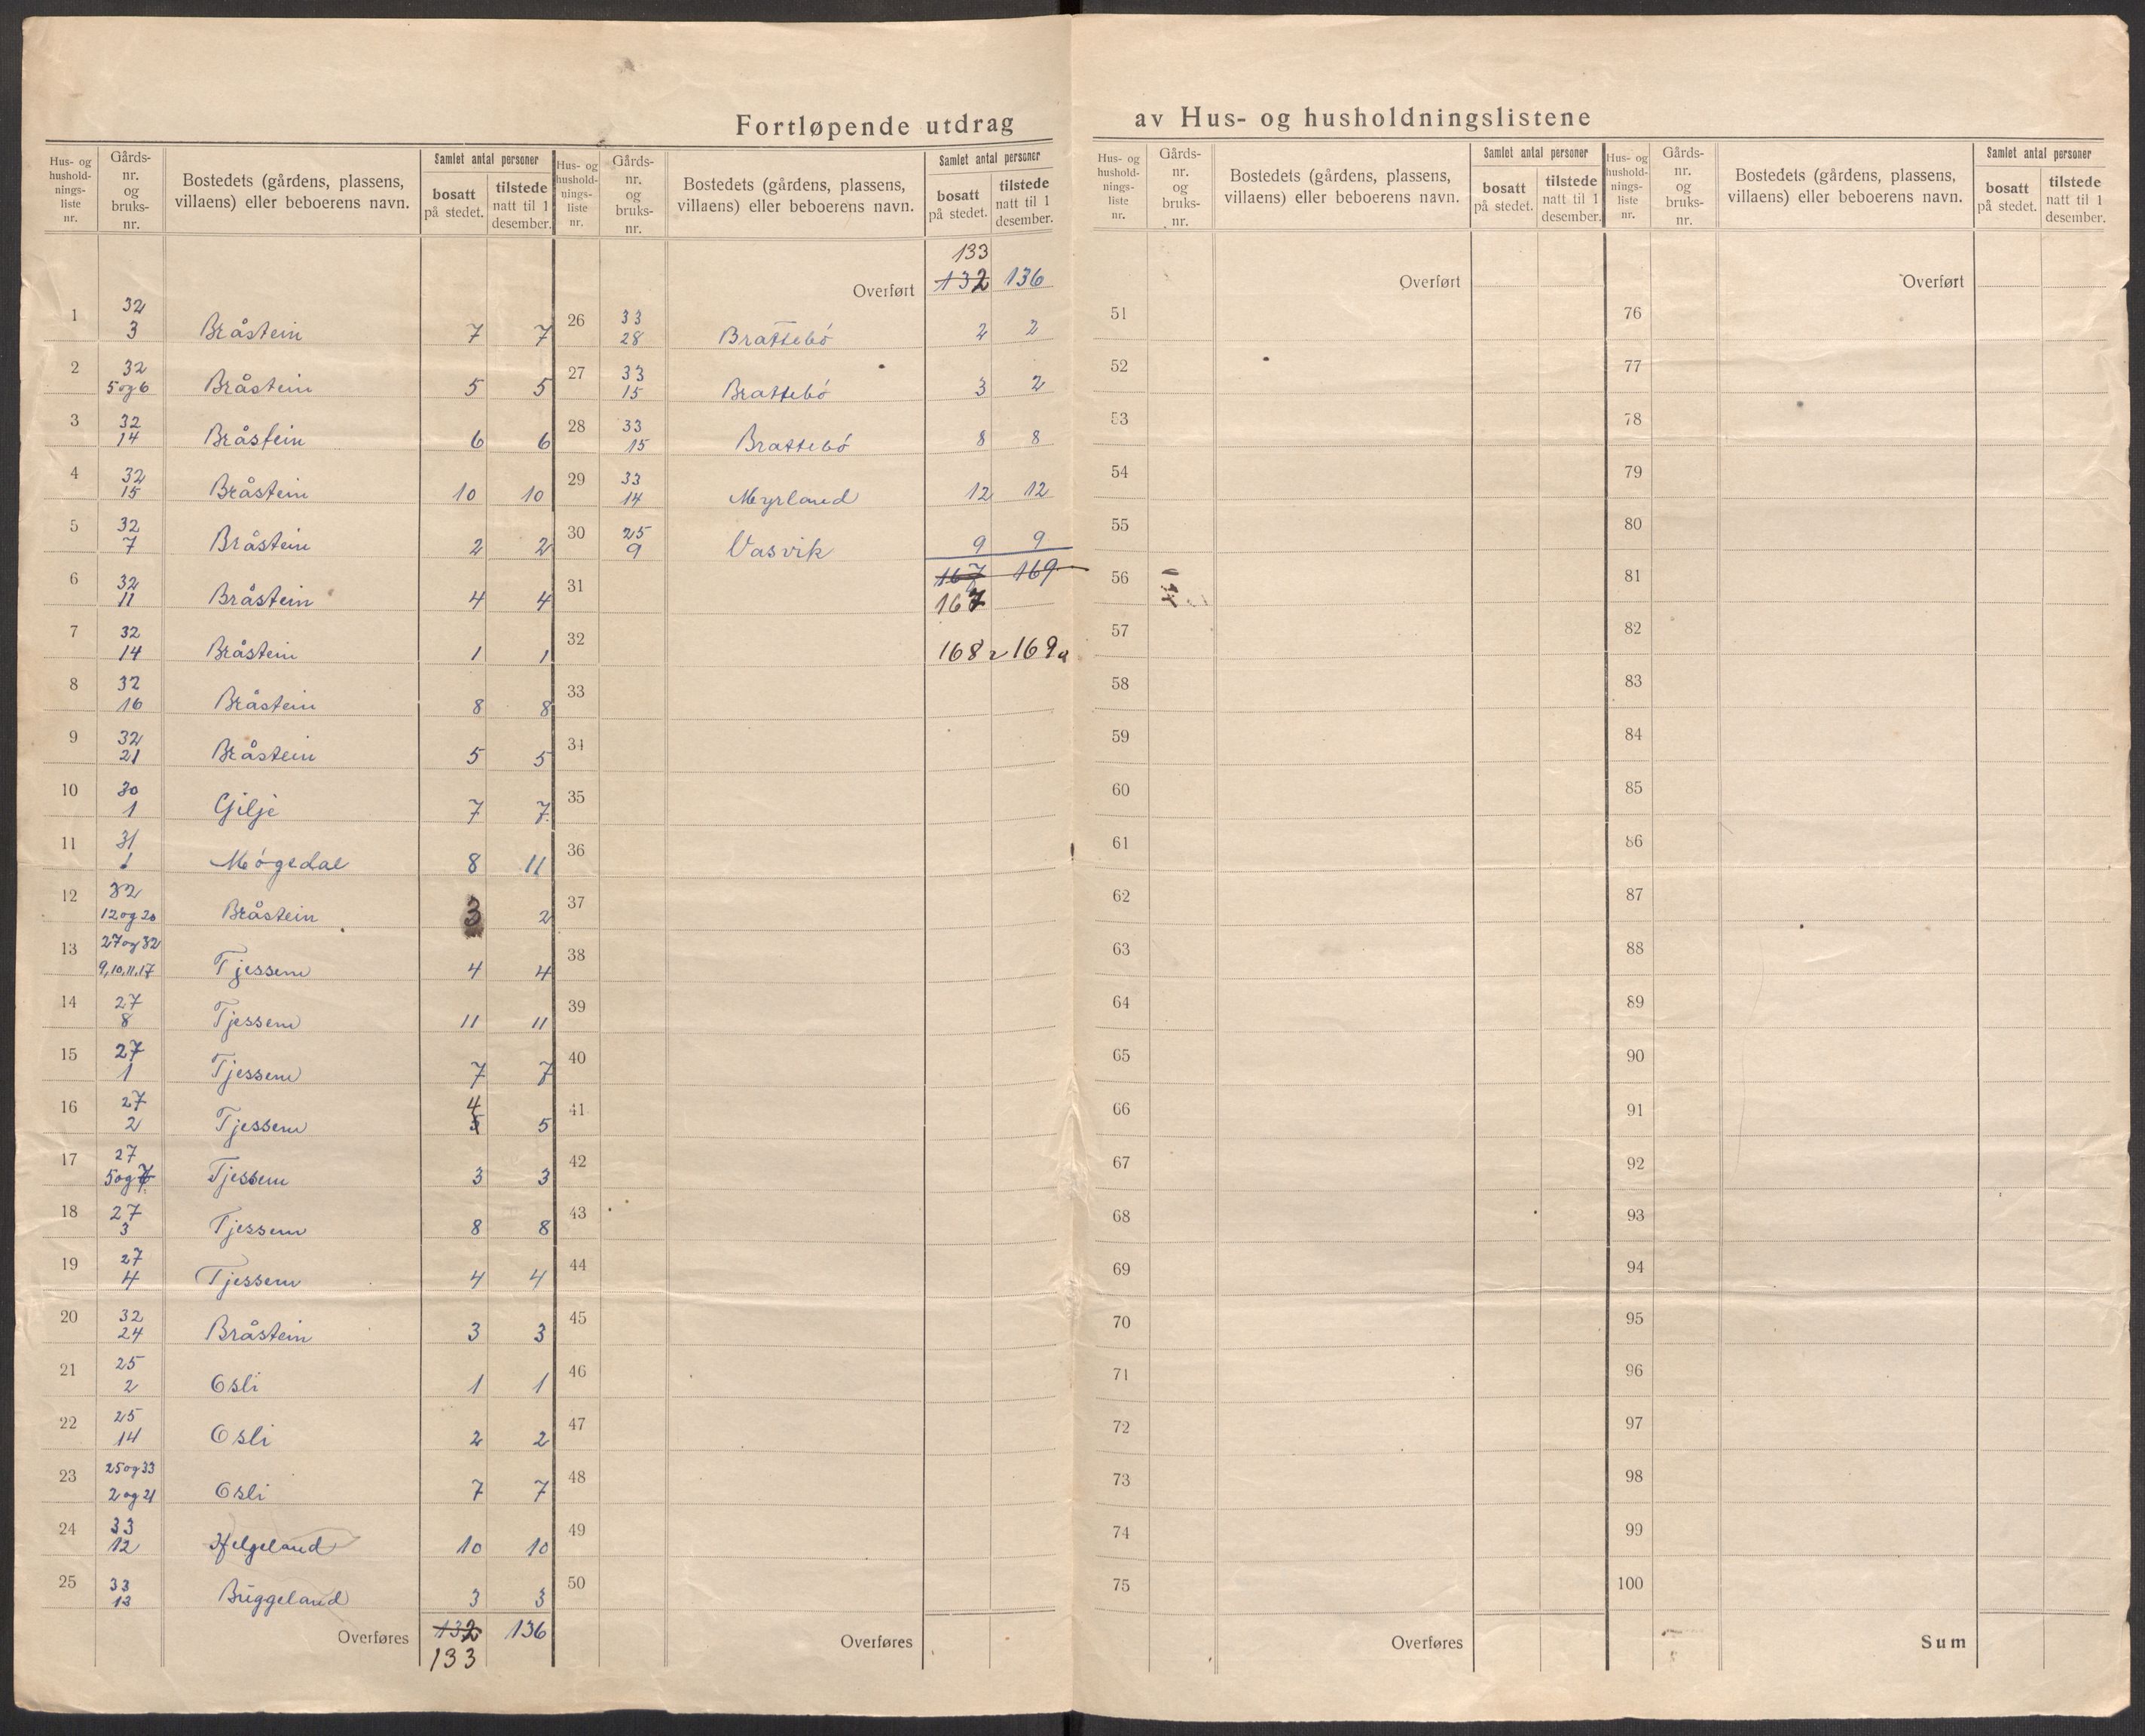 Fortløpende utdrag av Hus- og husholdningslistene
Hus- og hushold-nings-liste nr. Gårds-nr. og bruks-nr. Bostedets (gårdens, plassens, villaens) eller beboerens navn. Samlet antal personer bosatt på stedet. tilstede natt til 1 desember.
1 32 3 Bråstein 7 7
2 32 5 og 6 Bråstein 5 5
3 32 14 Bråstein 6 6
4 32 15 Bråstein 10 10
5 32 7 Bråstein 2 2
6 32 11 Bråstein 4 4
7 32 14 Bråstein 1 1
8 32 16 Bråstein 8 8
9 32 21 Bråstein 5 5
10 30 1 Gilje 7 7
11 31 1 Møgedal 8 11
12 32 12 og 20 Bråstein 3 2
13 27 og 32 9, 10, 11, 17 Tjessem 4 4
14 27 8 Tjessem 11 11
15 27 1 Tjessem 7 7
16 27 2 Tjessem 4 5 5
17 27 5 og Tjessem 3 3
18 27 3 Tjessem 8 8
19 27 4 Tjessem 4 4
20 32 24 Bråstein 3 3
21 25 2 Osli 1 1
22 25 14 Osli 2 2
23 25 og 33 2 og 21 Osli 7 7
24 33 12 Helgeland 10 10
25 33 13 Buggeland 3 3
Overføres 132 136
133
Hus- og hushold-nings-liste nr. Gårds-nr. og bruks-nr. Bostedets (gårdens, plassens, villaens) eller beboerens navn. Samlet antal personer bosatt på stedet. tilstede natt til 1 desember.
133
Overført 132 136
26 33 28 Brattebó 2 2
27 33 15 Brattebó 3 2
28 33 15 Brattebó 8 8
29 33 14 Myrland 12 12
30 25 9 Vasvik 9 9
31 167 169
167
32 168 169
33
34
35
36
37
38
39
40
41
42
43
44
45
46
47
48
49
50
Overføres
Hus- og hushold-nings-liste nr. Gårds-nr. og bruks-nr. Bostedets (gårdens, plassens, villaens) eller beboerens navn. Samlet antal personer bosatt på stedet. tilstede natt til 1 desember.
Overført
51
52
53
54
55
56
57
58
59
60
61
62
63
64
65
66
67
68
69
70
71
72
73
74
75
Overføres
Hus- og hushold-nings-liste nr. Gårds-nr. og bruks-nr. Bostedets (gårdens, plassens, villaens) eller beboerens navn. Samlet antal personer bosatt på stedet. tilstede natt til 1 desember.
Overført
76
77
78
79
80
81
82
83
84
85
86
87
88
89
90
91
92
93
94
95
96
97
98
99
100
Sum